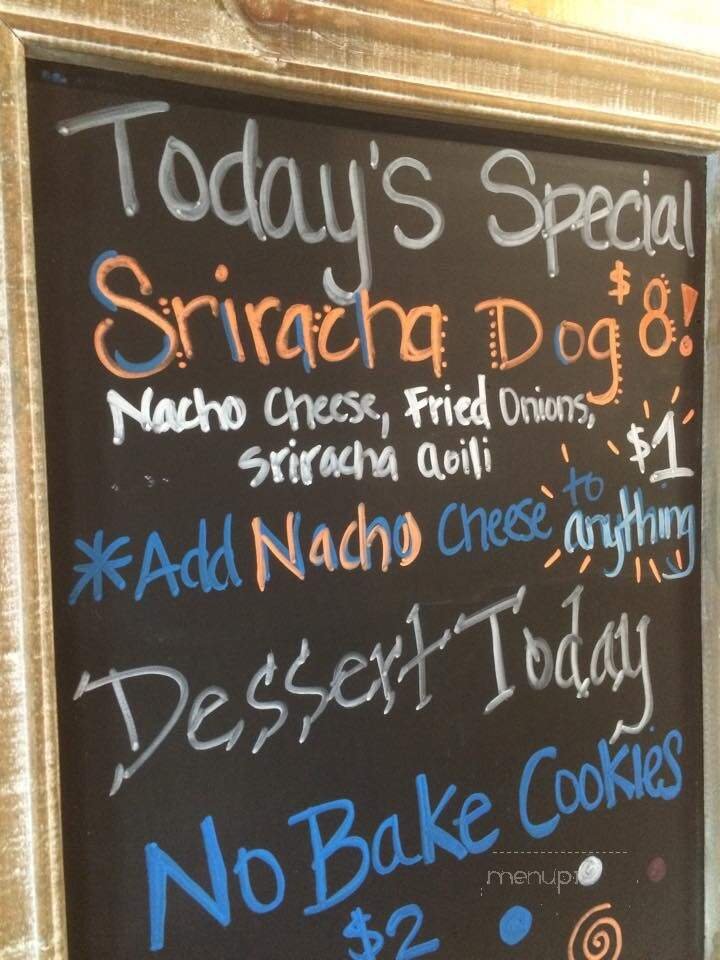 Today's Special
Sriracha Dog $8!
Nacho Cheese, Fried Onions,
sriracha aoili
$1
*Add Nacho Cheese to anything
Dessert Today
No Bake Cookies
$2
menupix